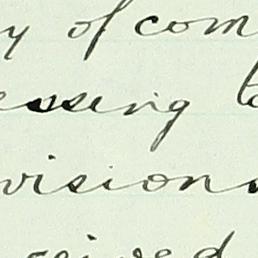 y of com
essing to
visions
ceived